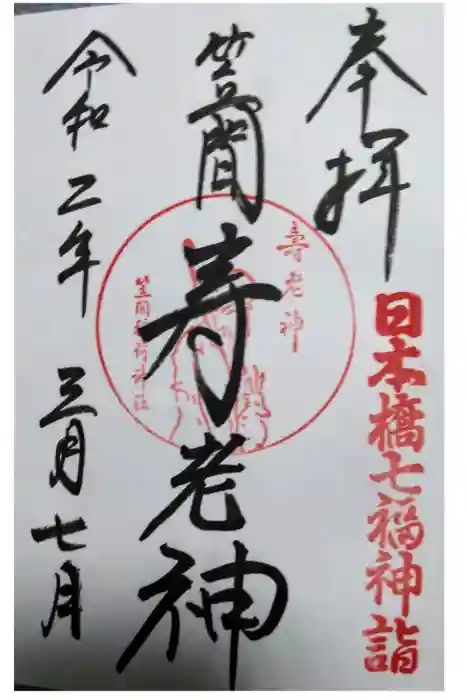 奉拝
日本橋七福神詣
笠間寿老神
寿老神
笠間稲荷神社
令和二年 三月七月